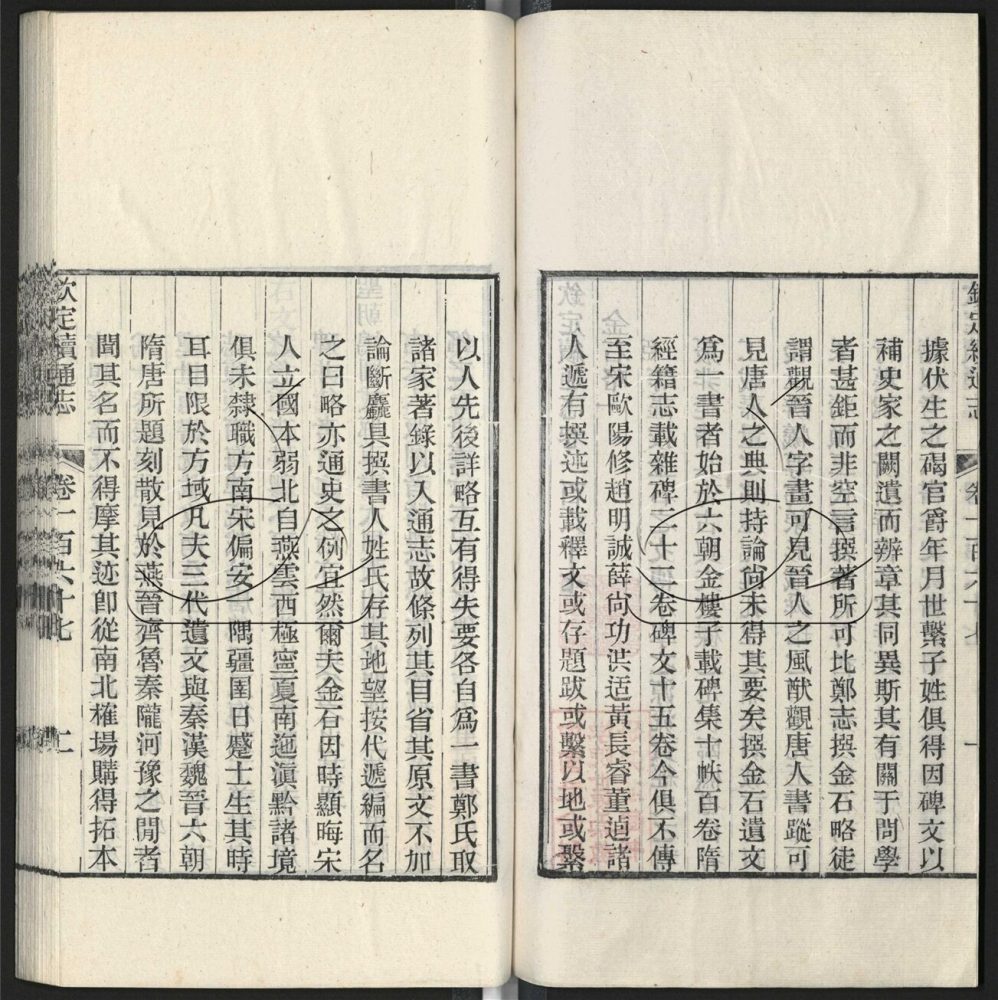 據伏生之碣官爵年月世繫子姓俱得因碑文以
補史家之闕遺而辨章其同異斯其有關于問學
者甚鉅而非空言撰著所可比鄭志撰金石略徒
謂觀晉人字畫可見晉人之風猷觀唐人書蹤可
見唐人之典則持論尚未得其要矣撰金石遺文
爲一書者始於六朝金樓子載碑集十帙百卷隋
經籍志載雜碑二十二卷碑文十五卷今俱不傳
至宋歐陽修趙明誠薛尚功洪适黃長睿董逌諸
人遞有撰述或載釋文或存題跋或繫以地或繫
以人先後詳略互有得失要各自爲一書鄭氏取
諸家著錄以入通志故條列其目省其原文不加
論斷麤具撰書人姓氏存其地望按代遞編而名
之曰略亦通史之例宜然爾夫金石因時顯晦宋
人立國本弱北自燕雲西極寧夏南迤滇黔諸境
俱未隸職方南宋偏安一隅疆圉日蹙士生其時
耳目限於方域凡夫三代遺文與秦漢魏晉六朝
隋唐所題刻散見於燕晉齊魯秦隴河豫之閒者
聞其名而不得摩其迹卽從南北榷場購得拓本
欽定續通志 卷一百六十七 二